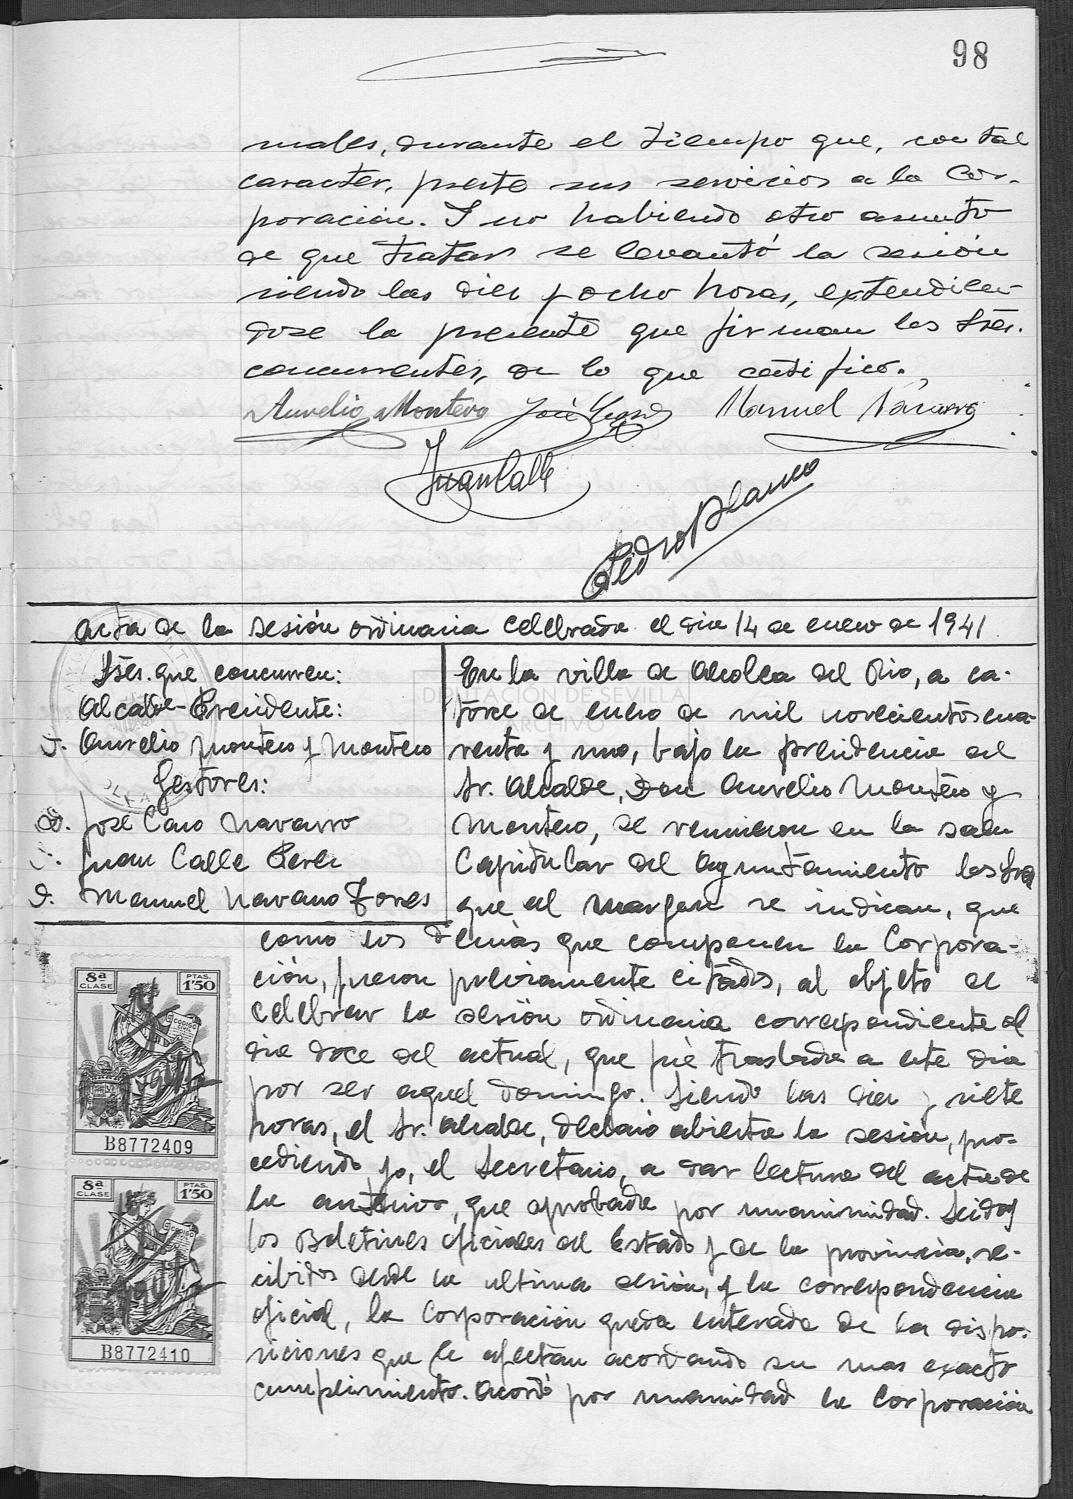 98
nuales, durante el tiempo que, con tal
caracter, preste sus servicios a la Cor-
poración. Y no habiendo otro asunto
de que tratar se levantó la sesión
siendo las diez y ocho horas, extendien-
dose la presente que firman los Sres.
concurrentes, de lo que certifico.
Aurelio Montero José Manuel Navarro
Juan Calle
Pedro Blanco
Acta de la sesión ordinaria celebrada el dia 14 de enero de 1941
Sres. que concurren:
Alcalde-Presidente:
D. Aurelio Montero y Montero
Gestores:
D. José Caro Navarro
D. Juan Calle Perez
D. Manuel Navarro Torres
En la villa de Alcolea del Rio, a ca-
torce de enero de mil novecientos cua-
renta y uno, bajo la presidencia del
Sr. Alcalde, Don Aurelio Montero y
Montero, se reunieron en la sala
Capitular del Ayuntamiento los Sres
que al margen se indican, que
como los demás que componen la Corpora-
ción, fueron previamente citados, al objeto de
celebrar la sesión ordinaria correspondiente al
dia doce del actual, que fué traslada a este dia
por ser aquel domingo. Siendo las diez y siete
horas, el Sr. Alcalde, declaró abierta la sesión, pro-
cediendo yo, el Secretario, a dar lectura del acta de
la anterior, que aprobada por unanimidad. Leidos
los Boletines oficiales del Estado y de la provincia, re-
cibidos desde la ultima sesión, y la correspondencia
oficial, la Corporación queda enterada de las dispo-
siciones que le afectan acordando su mas exacto
cumplimiento. Acordó por unanimidad la Corporación
DIPUTACIÓN DE SEVILLA
ARCHIVO
8ª CLASE
PTAS. 1'50
B8772409
8ª CLASE
PTAS. 1'50
B8772410